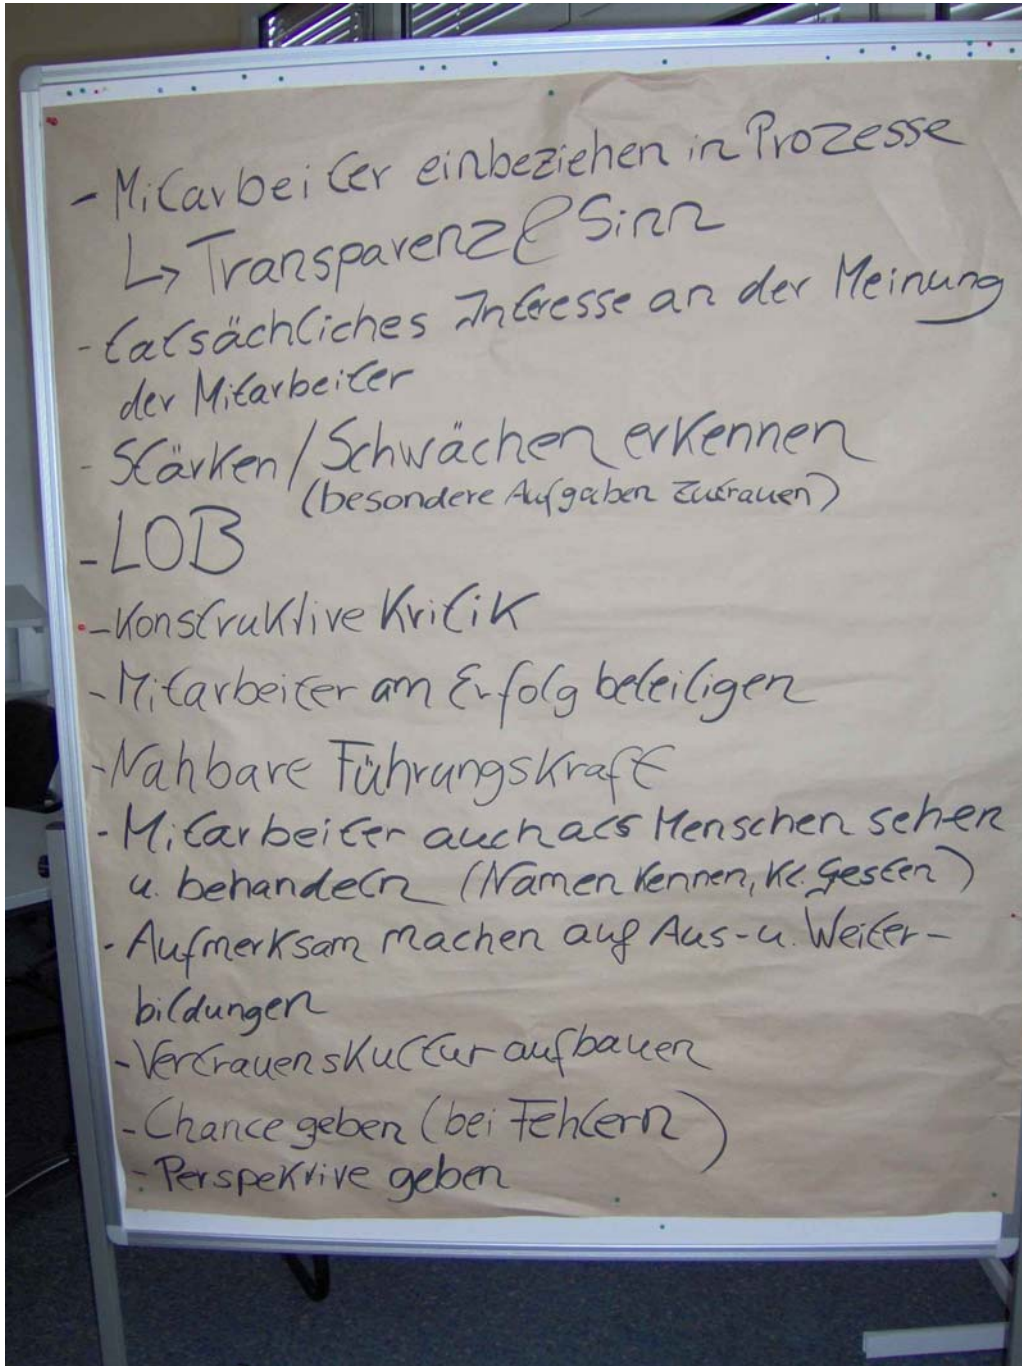 - Mitarbeiter einbeziehen in Prozesse
↳ Transparenz & Sinn
- tatsächliches Interesse an der Meinung
der Mitarbeiter
- Stärken / Schwächen erkennen
(besondere Aufgaben zutrauen)
- LOB
- Konstruktive Kritik
- Mitarbeiter am Erfolg beteiligen
- Nahbare Führungskraft
- Mitarbeiter auch als Menschen sehen
u. behandeln (Namen kennen, kl. Gesten)
- Aufmerksam machen auf Aus- u. Weiter-
bildungen
- Vertrauenskultur aufbauen
- Chance geben (bei Fehlern)
- Perspektive geben